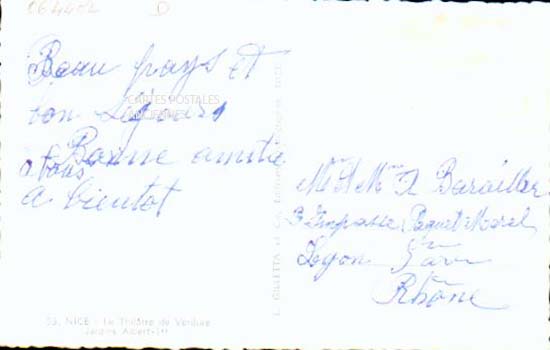 064402 D
Beau pays et
bon Séjours
Bonne amitié
a tous
a bientot
CARTES POSTALES
ANCIENNES
Mr et Mme A Barailler
3 Impasse Paquet-Morel
Lyon
Rhône
53. NICE - Le Théâtre de Verdure
Jardins Albert-1er